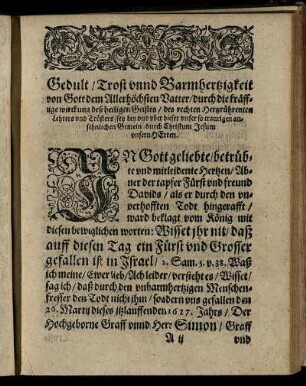 Gedult / Trost vnnd Barmhertzigkeit
von Gott dem Allerhöchsten Vatter / durch die kräff-
tige wirckung deß heiligen Geistes / des rechten Hertzrührenten
Lehrers vnd Trösters / sey bey vnd vber dieser vnser so traurigen an-
sehnlichen Gemein / durch Christum Jesum
vnsern HErren.
IN Gott geliebte / betrüb-
te vnd mitleidente Hertzen / Ab-
ner der tapfer Fürst vnd freund
Davids / als er durch den vn-
verhofften Todt hingerafft /
ward beklagt vom König mit
diesen beweglichen worten: Wisset jhr nit / daß
auff diesen Tag ein Fürst vnd Grosser
gefallen ist in Israel / 2. Sam. 3. v. 38. Waß
ich meine / Ewer lieb / Ach leider / verstehts / Wisset /
sag ich / daß durch den vnbarmhertzigen Menschen-
fresser den Todt nicht jhn / sondern vns gefallen den
26. Martij dieses jtzlauffenden 1627. Jahrs / Der
Hochgeborne Graff vnnd Herr SIMON / Graff
A ij vnd